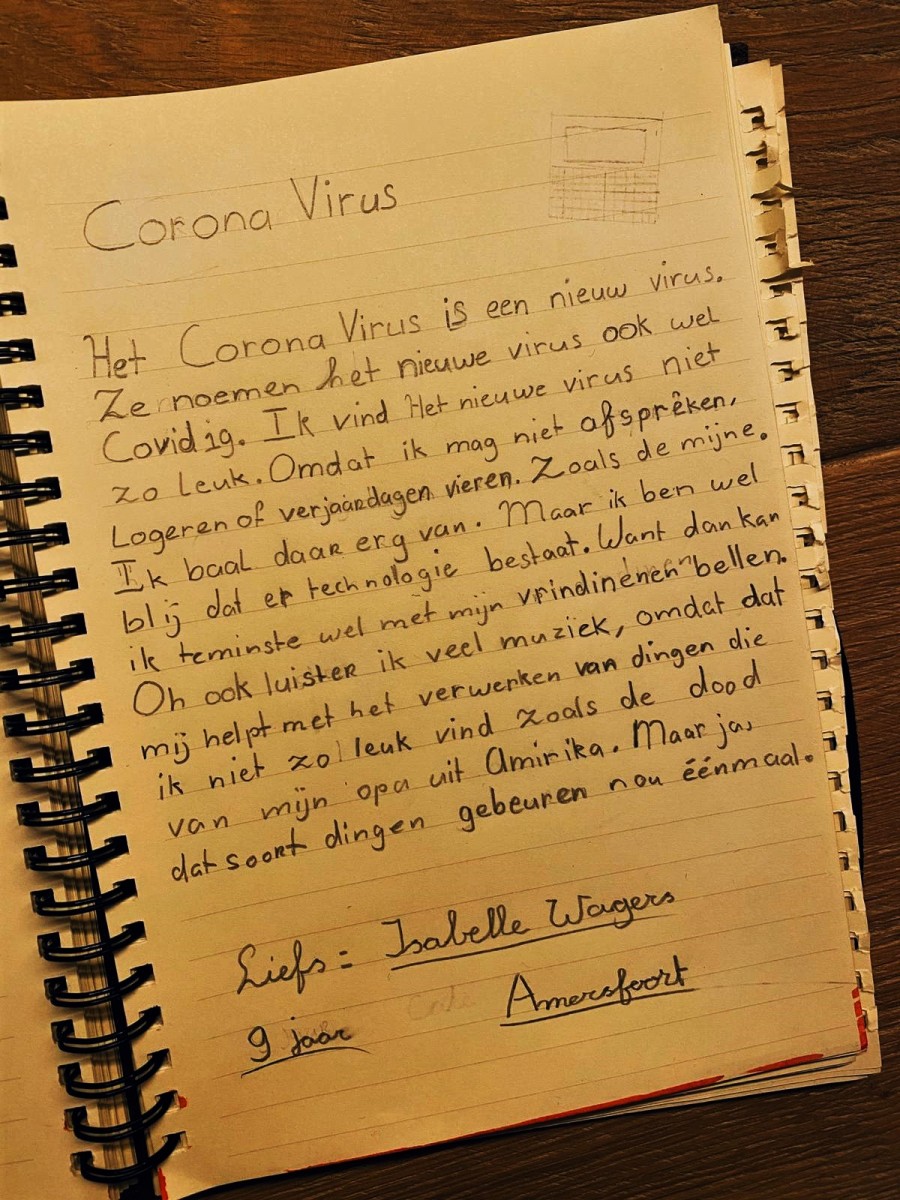 Corona Virus
Het Corona Virus is een nieuw virus.
Ze noemen het nieuwe virus ook wel
Covid 19. Ik vind Het nieuwe virus niet
zo leuk. Omdat ik mag niet afsprêken,
Logeren of verjaardagen vieren. Zoals de mijne.
Ik baal daar erg van. Maar ik ben wel
blij dat er technologie bestaat. Want dan kan
ik teminste wel met mijn vrindinenen bellen.
Oh ook luister ik veel muziek, omdat dat
mij helpt met het verwerken van dingen die
ik niet zo leuk vind zoals de dood
van mijn opa uit Amirika. Maar ja,
dat soort dingen gebeuren nou éénmaal.
Liefs: Isabelle Wagers
9 jaar Amersfoort